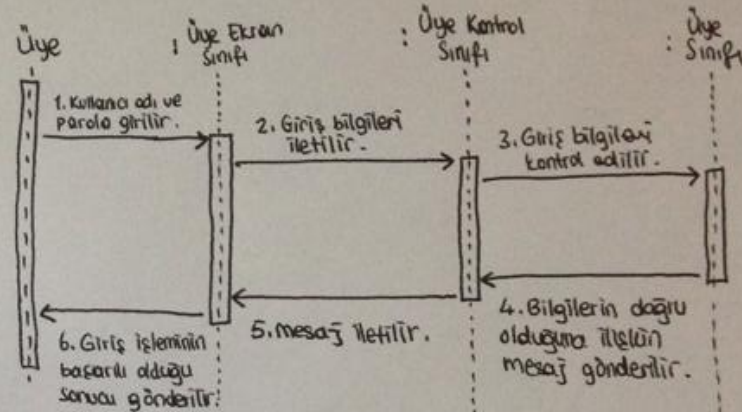 Üye
: Üye Ekran
Sınıfı
: Üye Kontrol
Sınıfı
: Üye
Sınıfı
1. Kullanıcı adı ve
parola girilir.
2. Giriş bilgileri
iletilir.
3. Giriş bilgileri
kontrol edilir.
4. Bilgilerin doğru
olduğuna ilişkin
mesaj gönderilir.
5. mesaj iletilir.
6. Giriş işleminin
başarılı olduğu
sonucu gönderilir.